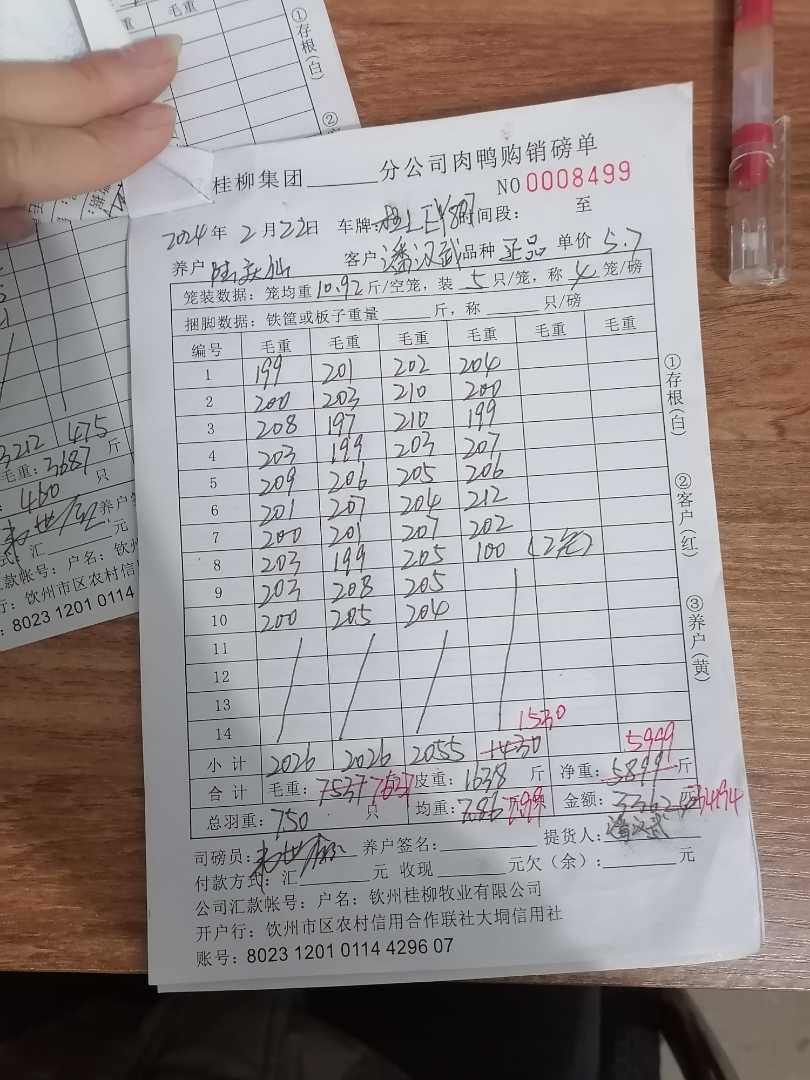 毛重
①存根(白)
②
3212 475
毛重:3687 斤
460 只
养户签
式:汇 元
款帐号:户名:钦州
行:钦州市区农村信用
:8023 1201 0114
桂柳集团 分公司肉鸭购销磅单
NO 0008499
2024 年 2 月 22 日 车牌: 时间段: 至
养户 客户 潘汉武 品种 正品 单价 5.7
笼装数据:笼均重 10.92 斤/空笼,装 5 只/笼,称 4 笼/磅
捆脚数据:铁筐或板子重量 斤,称 只/磅
编号 毛重 毛重 毛重 毛重 毛重 毛重
1 199 201 202 204
2 200 203 210 200
3 208 197 210 199
4 203 199 203 207
5 209 206 205 206
6 201 207 204 212
7 200 201 207 202
8 203 199 205 100 (2笼)
9 203 208 205
10 200 205 204
11
12
13
14
1530
小计 2026 2026 2055 1430
5999
合计 毛重:7537 7637 皮重:1638 斤 净重:5899 斤
总羽重:750 只 均重:7.86 7.99 金额:3362 34194
司磅员: 养户签名: 提货人:潘汉武
付款方式:汇 元 收现 元欠(余): 元
公司汇款帐号:户名:钦州桂柳牧业有限公司
开户行:钦州市区农村信用合作联社大垌信用社
账号:8023 1201 0114 4296 07
①存根(白)
②客户(红)
③养户(黄)